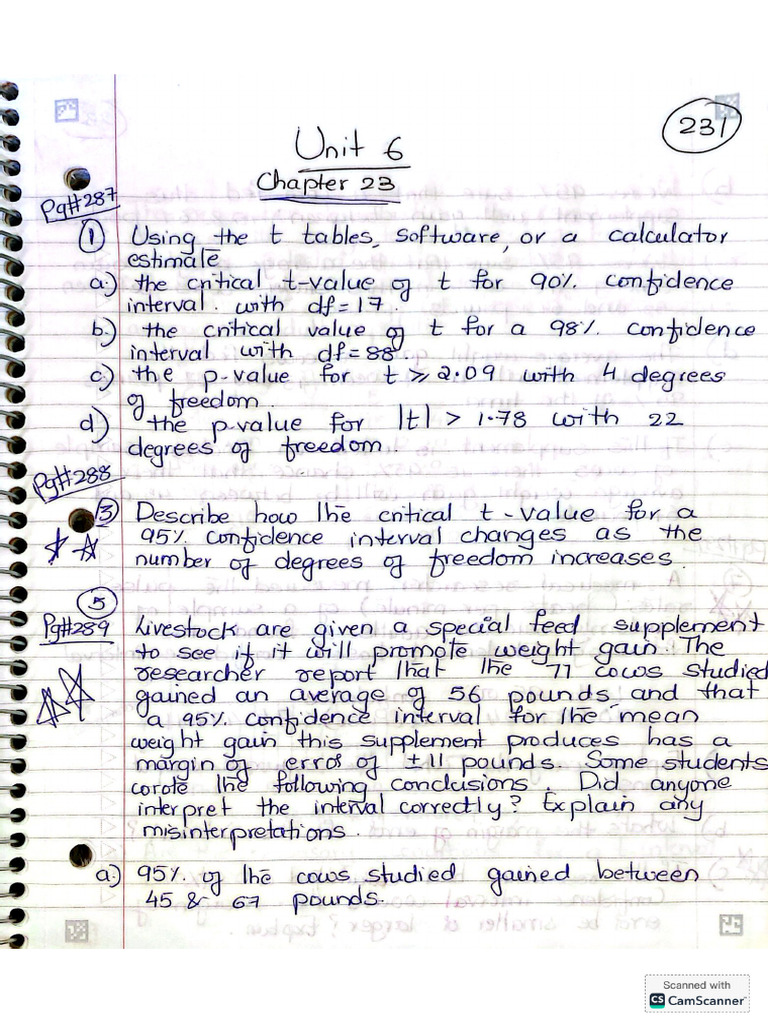 231
Unit 6
Chapter 23
Pg#287
① Using the t tables, software, or a calculator
estimate
a.) the critical t-value of t for 90% confidence
interval. with df=17.
b.) the critical value of t for a 98% confidence
interval with df=88.
c.) the p-value for t ⩾ 2.09 with 4 degrees
of freedom.
d.) the p-value for |t| > 1.78 with 22
degrees of freedom.
Pg#288
③ Describe how the critical t-value for a
95% confidence interval changes as the
number of degrees of freedom increases.
⑤
Pg#289 Livestock are given a special feed supplement
to see if it will promote weight gain. The
researcher report that the 77 cows studied
gained an average of 56 pounds, and that
a 95% confidence interval for the mean
weight gain this supplement produces has a
margin of error of ±11 pounds. Some students
wrote the following conclusions. Did anyone
interpret the interval correctly? Explain any
misinterpretations.
a.) 95% of the cows studied gained between
45 & 67 pounds.
Scanned with
CS CamScanner